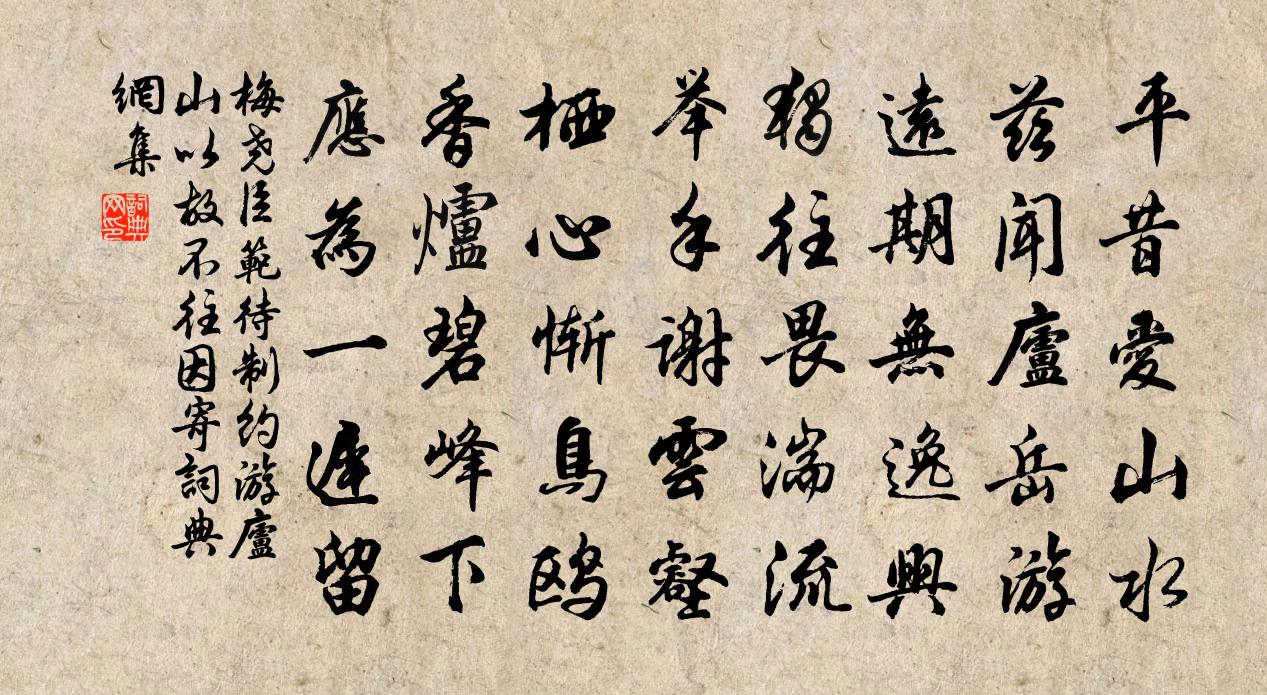 平昔愛山水
茲聞廬岳游
遠期無逸興
獨往畏湍流
举手謝雲壑
栖心慚鳥鸥
香爐碧峰下
應為一遲留
梅尧臣範待制約游廬
山以故不往因寄詞典
網集
詞典
网印